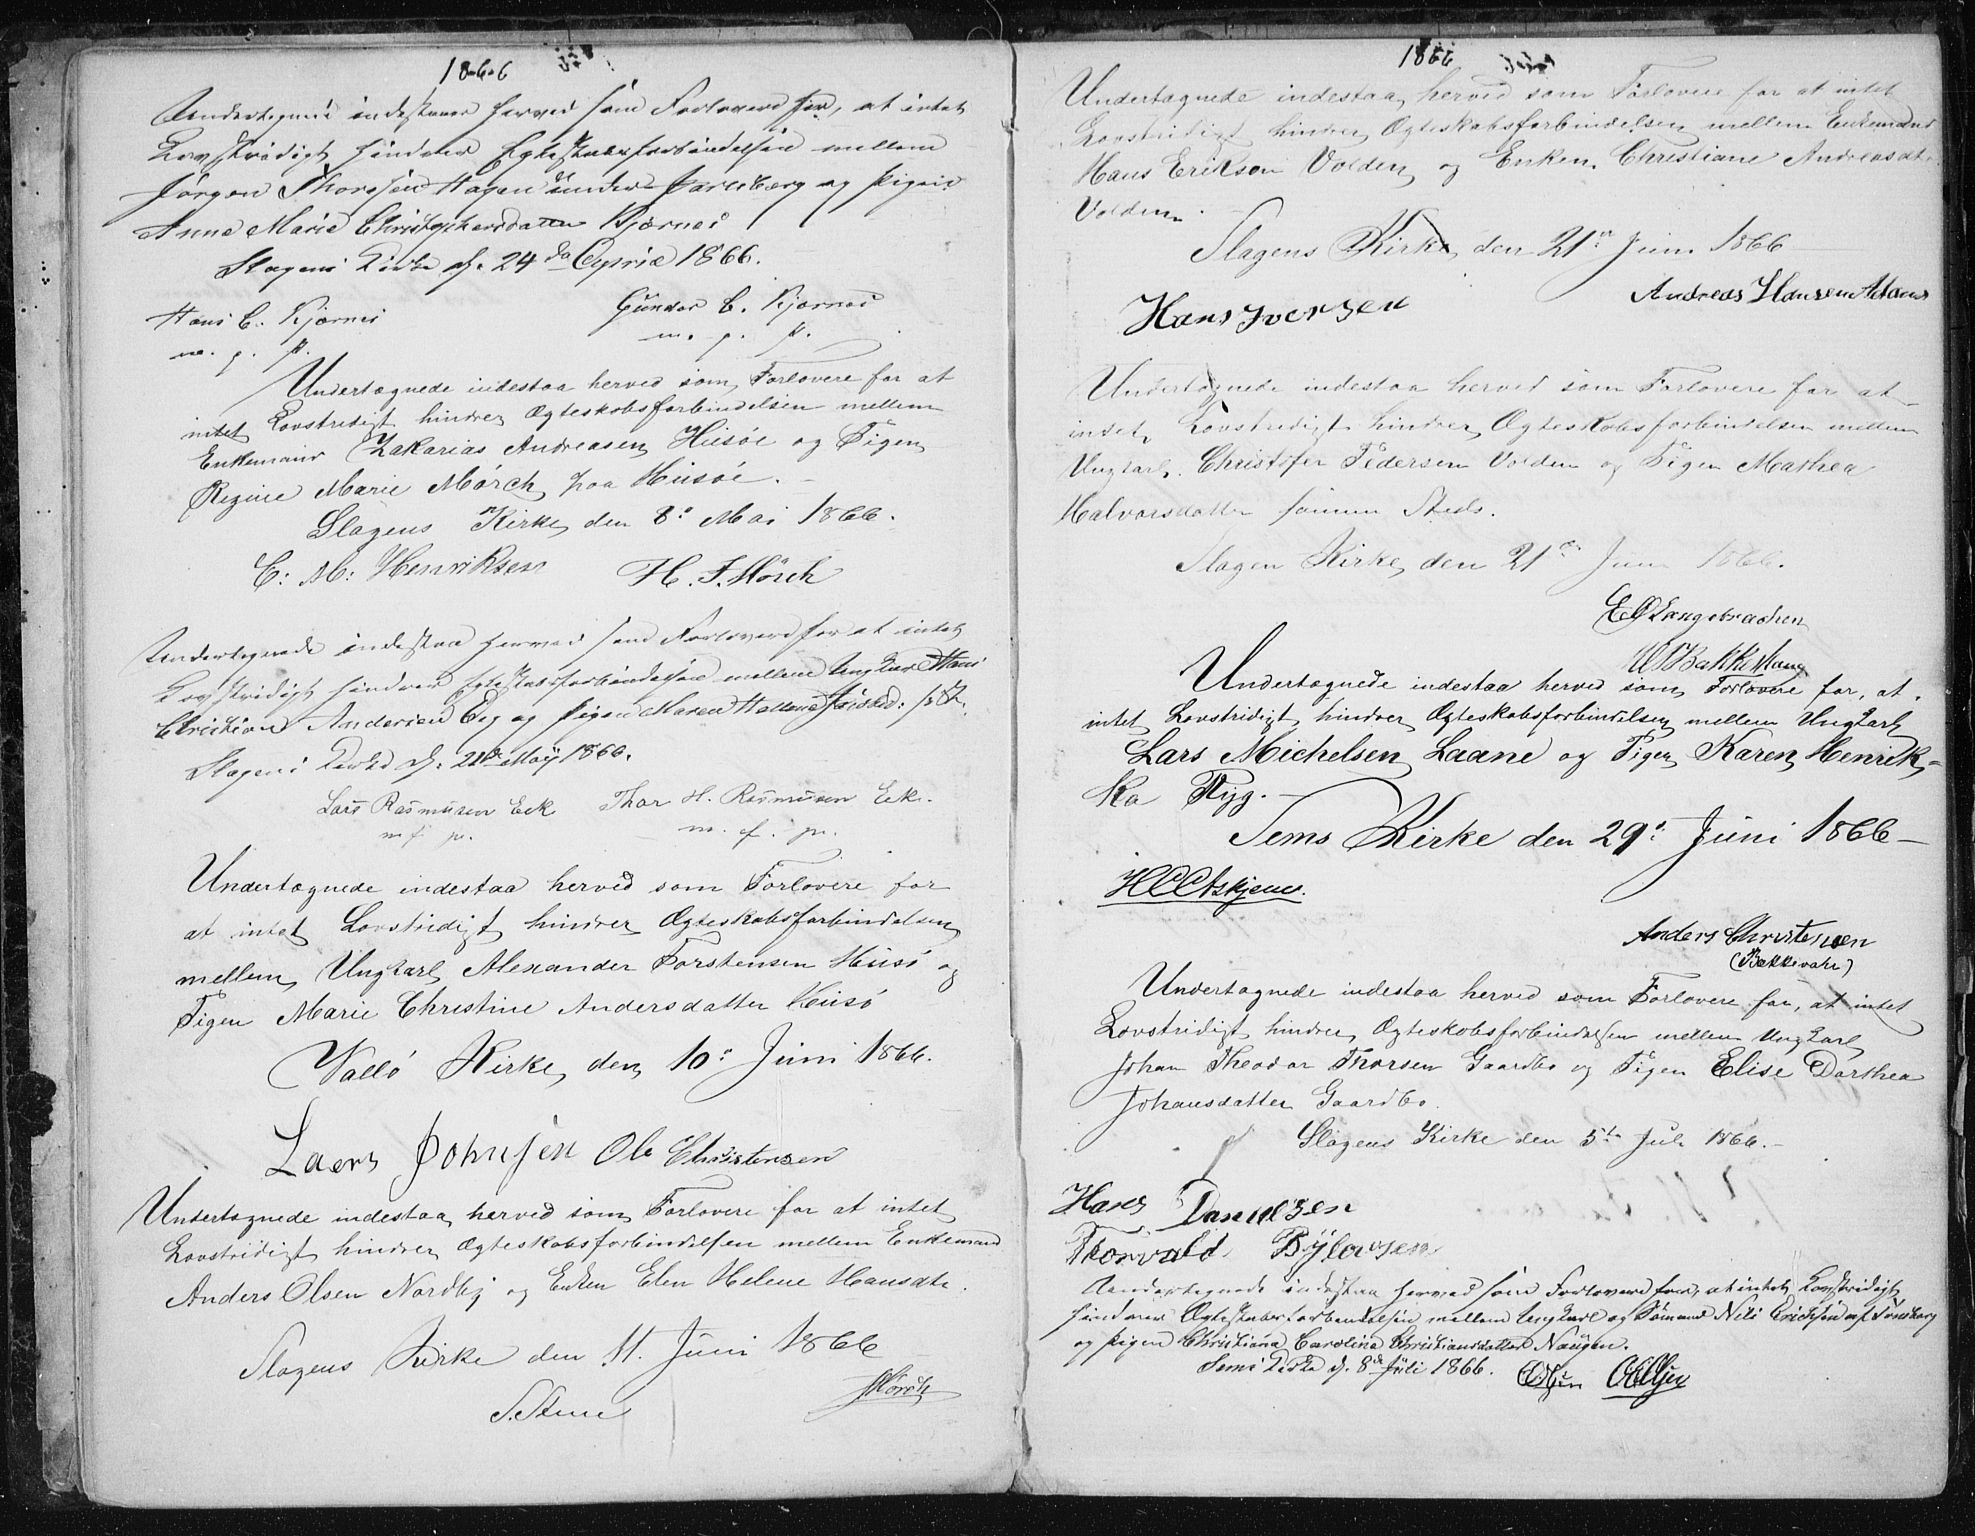 1866
Undertegnede indestaae herved som Forlovere for, at intet
Lovstridigt hindrer Egteskabsforbindelsen mellem
Jörgen Thorssen Hagen under Jarlsberg og Pigen
Anne Marie Christophersdatter Kjærnes
Slagens Kirke d. 24de April 1866.
Hans C. Kjærnes Gunder C. Kjærnes
m. p. P. m. p. P.
Undertegnede indestaa herved som Forlovere for at
intet Lovstridigt hindrer Ægteskabsforbindelsen mellem
Enkemand Zakarias Andreasen Husöe og Pigen
Regine Marie Mörch paa Husöe.
Slagens Kirke den 8de Mai 1866.
C: M: Henriksen H. F. Mörch
Undertegnede indestaa herved som Forlovere for at intet
Lovstridigt hindrer Egteskabsforbindelsen mellem Ungkarl Hans
Christian Andersen Eeg og Pigen Karen Hellene
Slagens Kirke d. 21de May 1866.
Lars Rasmusen Eek Thor H. Rasmusen Eek.
m. f. p. m. f. p.
Undertegnede indestaa herved som Forlovere for
at intet Lovstridigt hindrer Ægteskabsforbindelsen
mellem Ungkarl Alexander Torstensen Husö og
Pigen Marie Christine Andersdatter Husö
Vallö Kirke den 10de Juni 1866.
Laers Johnsen Ole Christensen
Undertegnede indestaa herved som Forlovere for at intet
Lovstridigt hindrer Ægteskabsforbindelsen mellem Enkemand
Anders Olsen Nordby og Enken Elen Helene Hansdtr.
Slagens Kirke den 11. Juni 1866
S. Steen Mörch
1866
Undertegnede indestaa herved som Forlovere for at intet
Lovstridigt hindrer Ægteskabsforbindelsen mellem Enkemand
Hans Eriksen Volden og Enken Christiane Andreasdtr
Volden.
Slagens Kirke den 21de Juni 1866
Hans Iversen Andreas Hansen
Undertegnede indestaa herved som Forlovere for at
intet Lovstridigt hindrer Ægteskabsforbindelsen mellem
Ungkarl Christofer Pedersen Volden og Pigen Mathea
Halvorsdatter samme Steds.
Slagen Kirke den 21de Juni 1866.
Undertegnede indestaa herved som Forlovere for, at
intet Lovstridigt hindrer Ægteskabsforbindelsen mellem Ungkarl
Lars Michelsen Laane og Pigen Karen Henrik-
ka Ryg.
Sems Kirke den 29de Juni 1866
Anders Christensen
(Bakkevahr)
Undertegnede indestaa herved som Forlovere for, at intet
Lovstridigt hindrer Ægteskabsforbindelsen mellem Ungkarl
Johan Theodor Thorsen Gaardbo og Pigen Elise Dorthea
Johansdatter Gaardbo.
Slagens Kirke den 5te Juli 1866.
Hans Danielsen
Thorvald Bylowsen
Undertegnede indestaa herved som Forlovere for, at intet Lovstridigt
hindrer Ægteskabsforbindelsen mellem Ungkarl og Sömand Nils Erichsen af Tönsberg
og Pigen Christiana Carolina Christiansdatter Naugen.
Sems Kirke d. 8de Juli 1866.